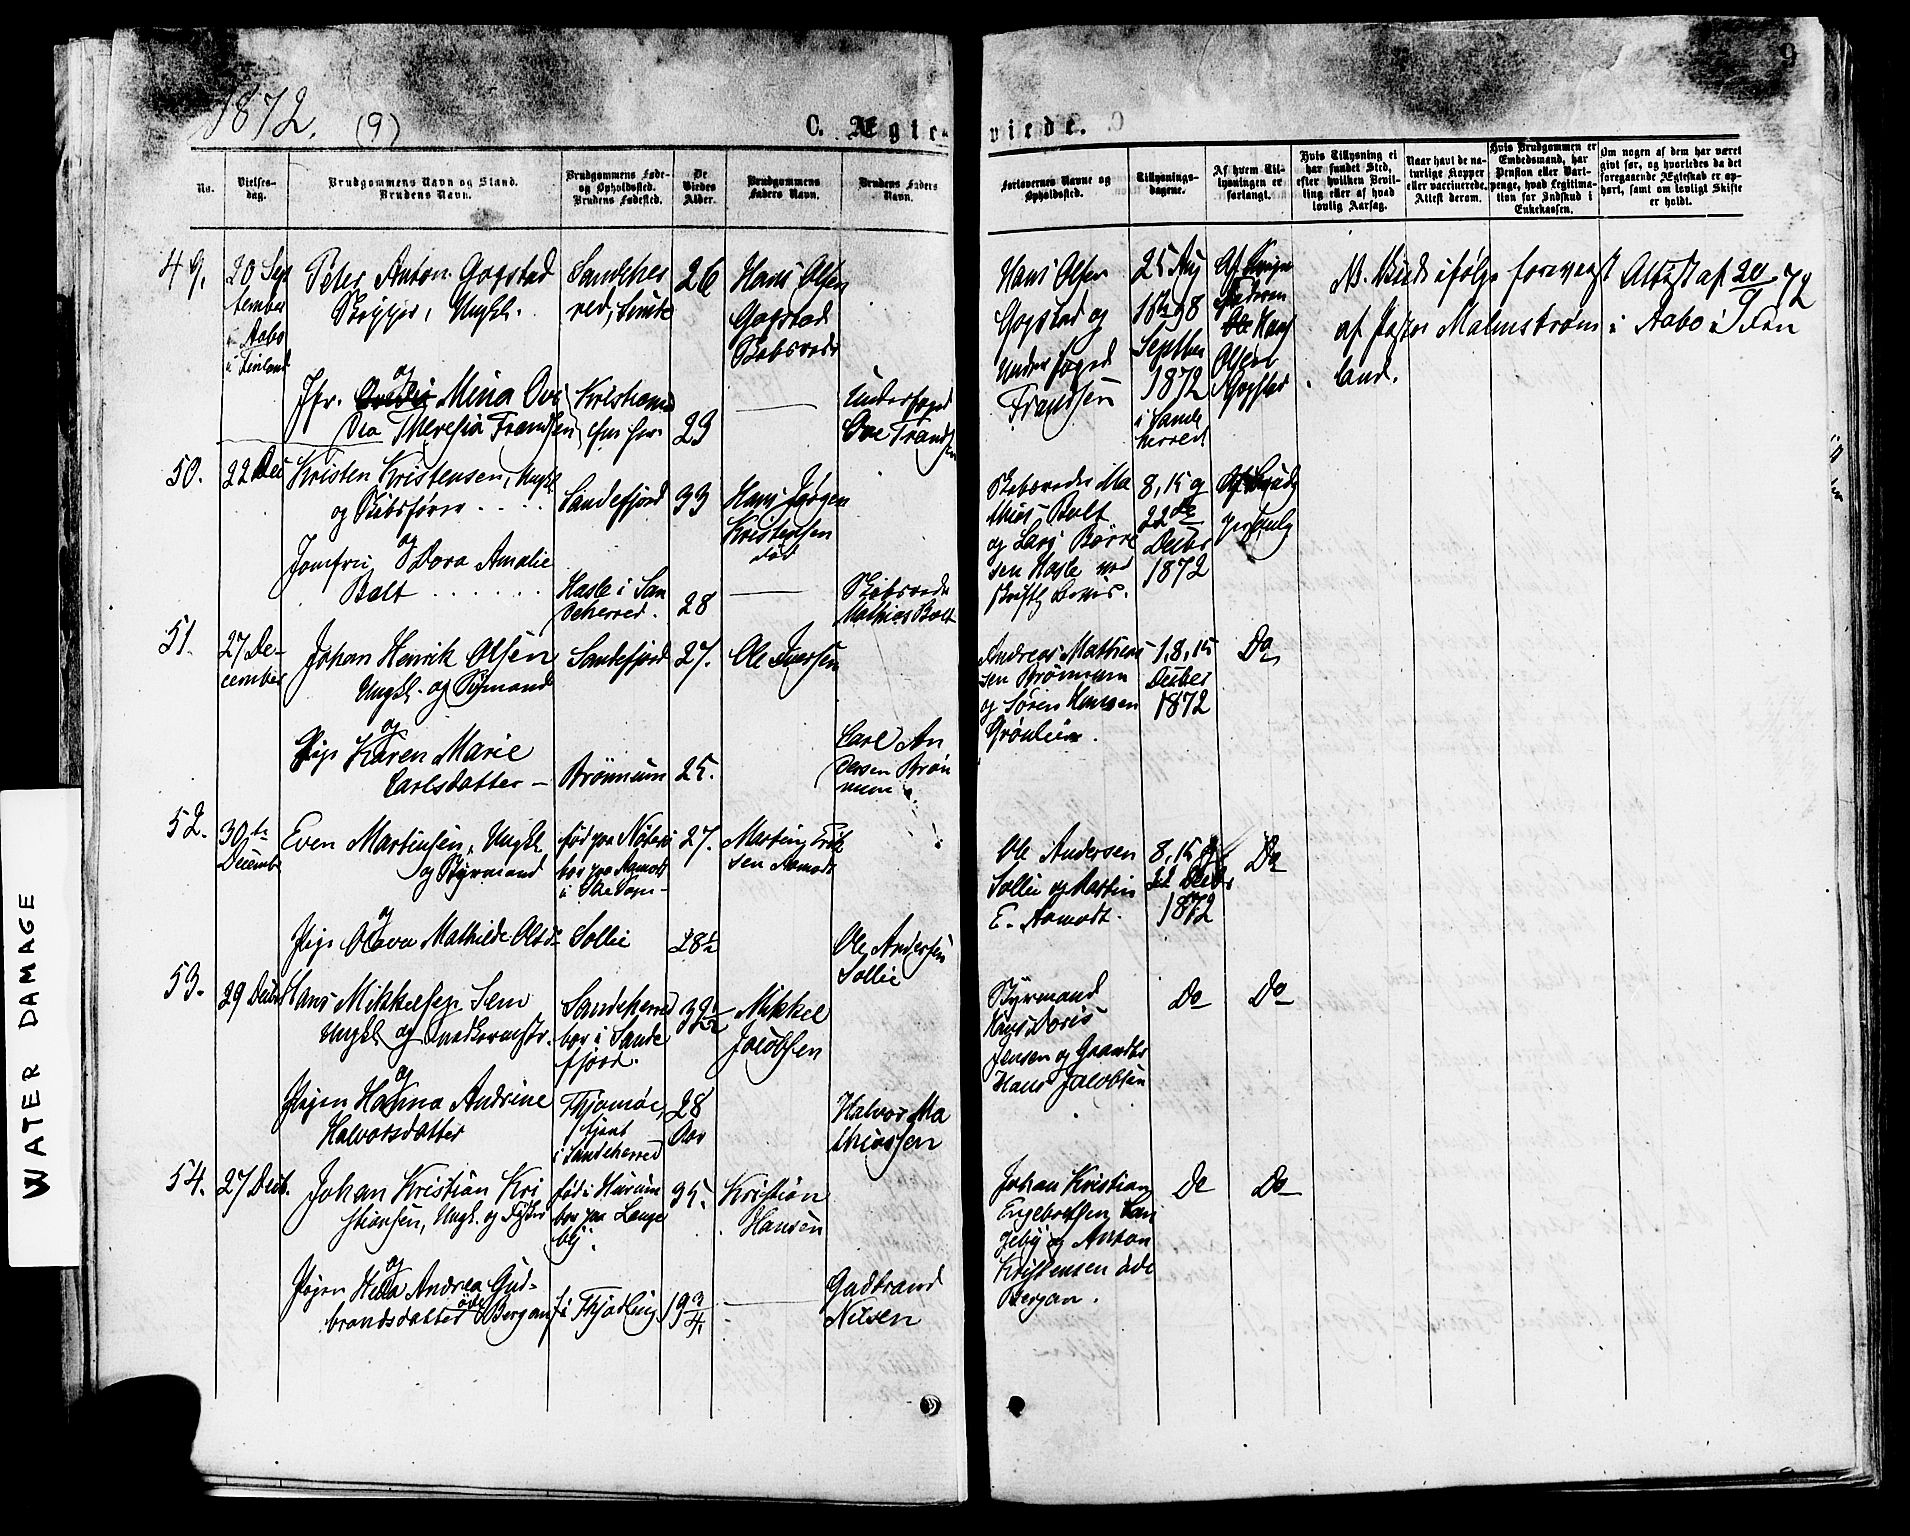 1872. (9)
C. Ægte-
viede.
9
No.
Vielses-
dag.
Brudgommens Navn og Stand.
Brudens Navn.
Brudgommens Føde-
og Opholdssted.
Brudens Fødested.
De
Viedes
Alder.
Brudgommens
Faders Navn.
Brudens Faders
Navn.
Forlovernes Navne og
Opholdssted.
Tillysnings-
dagene.
Af hvem Til-
lysningen er
forlangt.
Hvis Tillysning ei
har fundet Sted,
efter hvilken Bevil-
ling eller af hvad
lovlig Aarsag.
Naar havt de na-
turlige Kopper
eller vaccinerede.
Attest derom.
Hvis Brudgommen er
Embedsmand, har
Pension eller Vart-
penge, hvad Legitima-
tion for Indskud i
Enkekassen.
Om nogen af dem har været
gift før, og hvorledes da det
foregaaende Ægteskab er op-
hørt, samt om lovligt Skifte
er holdt.
49.
20 Sep
tember
i Aabo
i Finland
Peter Anton Gogstad
Skipper, Ungkl.
og
Jfr. Mina Ove
dia Theresia Frandsen
Sandeher
red,
Kristians
26
23
Hans Olsen
Gogstad
Skibsreder
Underfoged
Ove Frandsen
Hans Olsen
Gogstad og
Underfoged
Frandsen
25 Aug
1ste og 8
Septber
1872
i Sande
herred
Af
Hans
Olsen
Gogstad
N. Viede ifølge forevaagt Attest af 20/9 72
af Pastor Malmstrøm i Aabo i Fin
land.
50.
22 Dec
Kristen Kristensen, Ungkl
og Skibsfører
og
Jomfru Dora Amalie
Bolt
Sandefjord
Hasle i San
deherred.
33
28
Hans Jørgen
Kristensen
død
Skibsreder
Mathias Bolt
Skibsreder Ma
thias Bolt
og Lars Børre
sen Hasle ved
skriftlig Bevis.
8, 15 og
22de
Decbr
1872
Af Brudg
personlig
51.
27 De-
cember
Johan Henrik Olsen
Ungkl. og Sømand
og
Pige Karen Marie
Carlsdatter
Sandefjord
Brønnum
27.
25.
Ole Iversen
Carl An
dersen Brøn
num
Andreas Mathias
sen Brønnum
og Søren Hansen
Grønlien.
1, 8, 15
Decber
1872
Do
52.
30te
Decembr
Even Martinsen, Ungkl.
og Styrmand
og
Pige Olava Mathilde Olsd
født paa Nøterø
bor paa Aamodt
Sollie
27.
28½
Martin Erik
sen Aamodt
Ole Andersen
Sollie
Ole Andersen
Sollie og Martin
E. Aamodt.
8, 15 og
22 Decbr
1872
Do
53.
29 Decbr
Hans Mikkelsen Sem
Ungkl og Snedkermstr.
og
Pigen Hanna Andrine
Halvorsdatter
Sandeherred
bor i Sande
fjord.
Thjømøe,
tjent
i Sandeherred
39½
28
Aar
Mikkel
Jacobsen
Halvor Ma
thiassen
Styrmand
Hans Doris
Jensen og Gaardbr
Hans Jacobsen
Do
Do
54.
27 Decb.
Johan Kristian Kri
stiansen, Ungk. og Fisker
og
Pigen Helea Andrea Gud-
brandsdatter øde Bergan
født i Hurum
bor paa Lange
by.
f. i Thjødling
35.
19¾
Kristian
Hansen
Gudbrand
Nilsen
Johan Kristian
Engebretsen Lan
geby og Anton
Kristensen øde
Bergan.
Do
Do
WATER DAMAGE